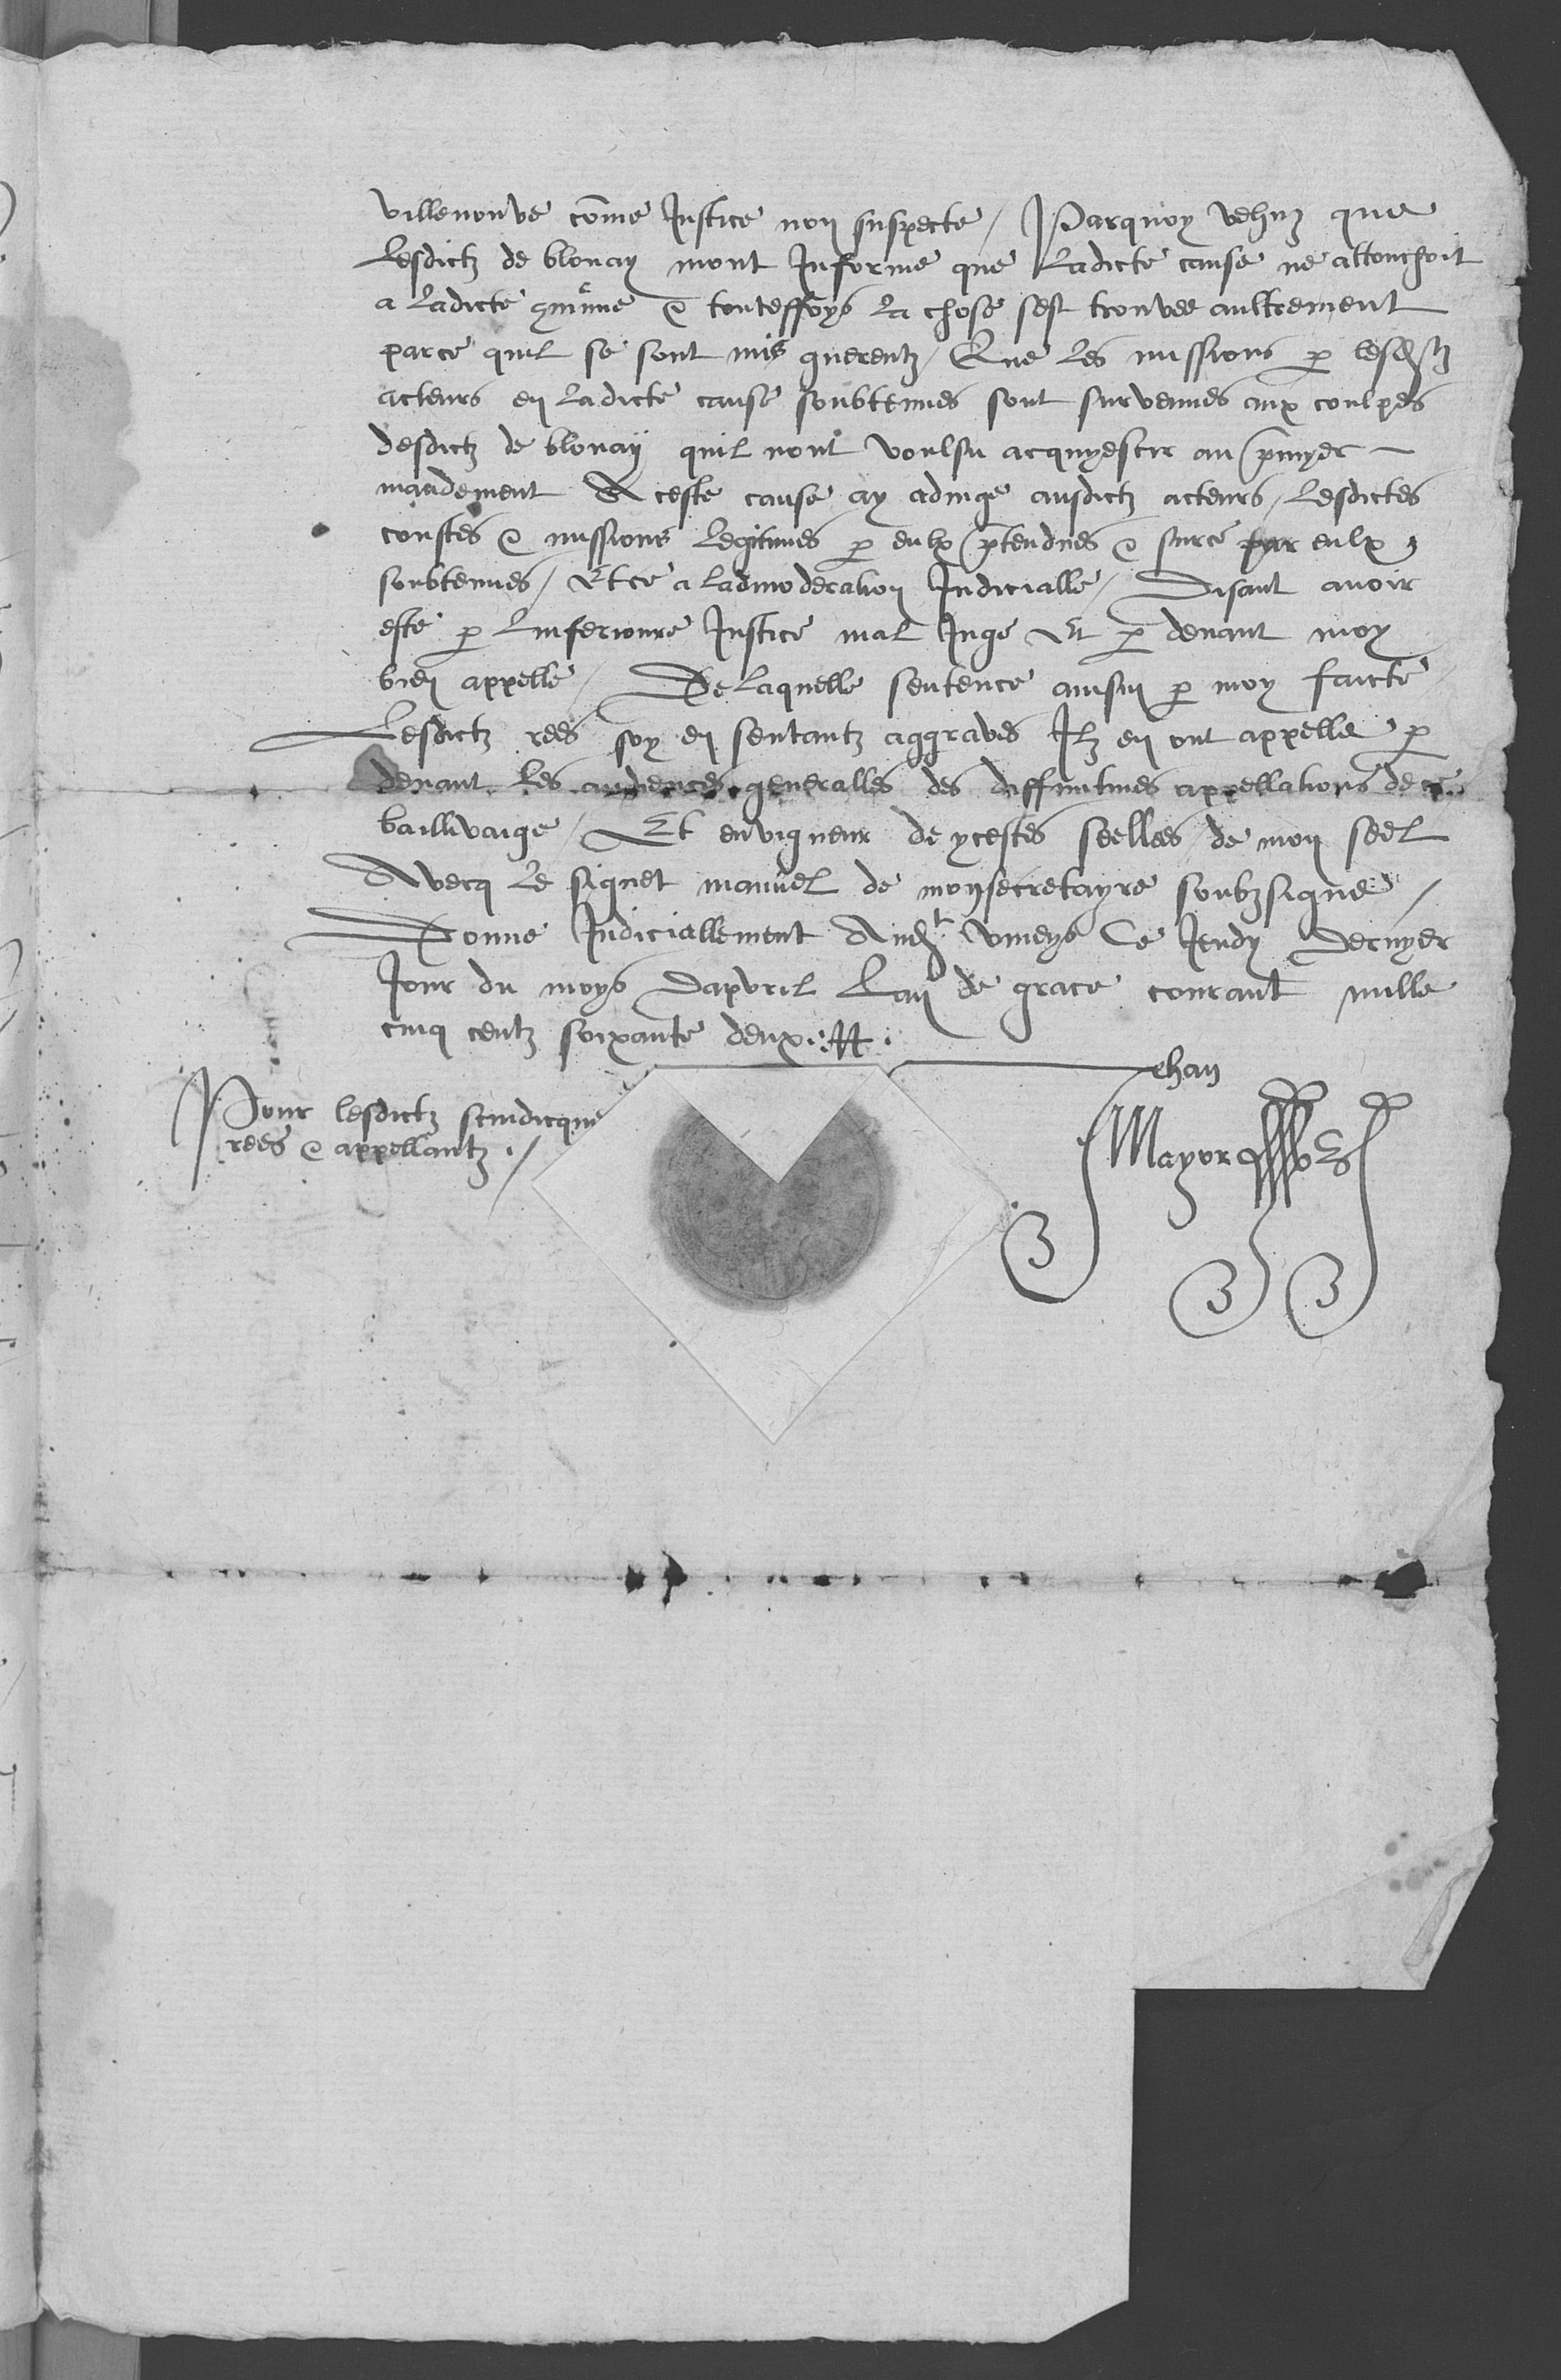 villenouve cõme Justice non suspecte / Parquoy vehuz que
Lesdictz de blonay mont Informe que Ladicte cause ne attouchoit
a Ladicte & touteffoys La chose sest trouvee aultrement
parce quil se sont mis querentz / Que Les missions p lesdictz
acteurs en Ladicte cause soubtenues sont survenues aux coulpes
desdictz de blonay quil nont voulsu acquyescir au pmyer
mandement A ceste cause ay adiuge ausdictz acteurs / Lesdictes
coustes & missions Legitimes p eulx ptendues & surce par eulx
soubtenues / Et ce a Ladmoderation Judicialle / Disant avoir
este p Linferioure Justice mal Juge Et p devant moy
bien appelle / De Laquelle sentence ainsin p moy faicte
Lesdictz rees soy en sentantz aggraves Ilz en ont appelle p
devant Les audiences generalles des diffinitives appellations de ce
baillivaige / Et en vigueur de ycestes seellees de mon seel
Avecq Le signet manuel de mon secretayre soubzsigne /
Donne Judiciallement Le Jeudy dernyer
Jour du moys Dapvril Lan de grace courant mille
cinq centz soixante deux
Jehan
Pour lesdictz scindicque
rees & appellantz /
Mayor